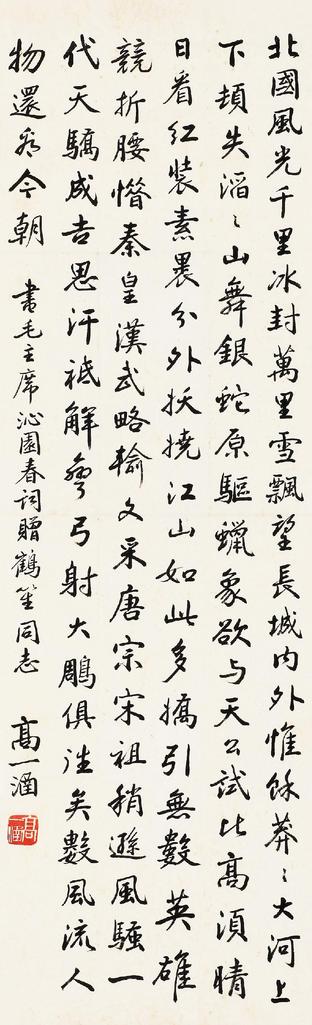 北國風光千里冰封萬里雪飄望長城内外惟餘莽〻大河上
下頓失滔〻山舞銀蛇原驅蠟象欲与天公試比高須晴
日看紅裝素裹分外妖嬈江山如此多嬌引無數英雄
競折腰惜秦皇漢武略輸文采唐宗宋祖稍遜風騷一
代天驕成吉思汗祗解彎弓射大鵰俱往矣數風流人
物還看今朝
書毛主席沁園春詞贈鶴笙同志
高一涵
高一涵